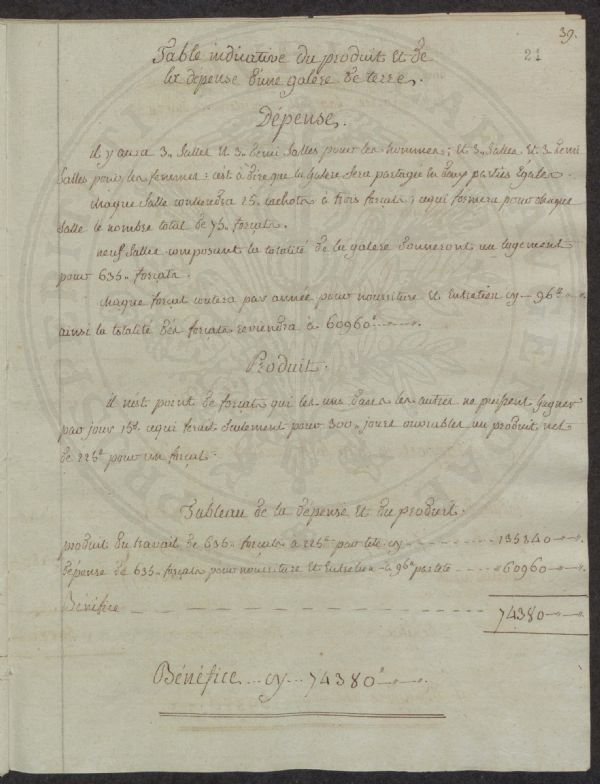 39.
21
Table indicative du produit et de
la dépense d'une galere de terre.
Dépense.
il y aura 3. salles et 3. demi salles pour les hommes; et 3. salles et 3 demi
salles pour les femmes: c'est à dire que la galere sera partagée en deux parties égales.
chaque salle contiendra 25. cachots à trois forçats; cequi formera pour chaque
salle le nombre total de 75. forçats.
neuf salles composant la totalité de la galere donneront un logement
pour 635. forçats.
chaque forçat coutera par année pour nourriture et entretien cy 96#
ainsi la totalité des forçats reviendra à 60960#
Produit.
il n'est point de forçats qui les uns dans les autres ne puissent gagner
par jour 15s. cequi ferait seulement pour 300. jours ouvrables un produit net
de 225# pour un forçat.
Tableau de la dépense et du produit.
produit du travail de 635. forçats à 225# par tete cy 135340
dépense de 635. forçats pour nourriture et entretien à 96# par tete 60960
Bénéfice 74380
Bénéfice cy 74380#